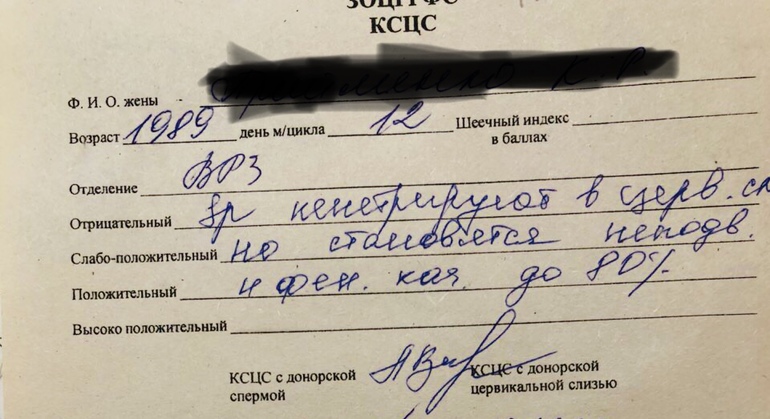 КСЦС
Ф. И. О. жены
Возраст 1989 день м/цикла 12 Шеечный индекс
в баллах
Отделение ВРЗ
Отрицательный Sp пенетрируют в церв. сл
Слабо-положительный но становятся неподв.
Положительный и фен. кач. до 80%
Высоко положительный
КСЦС с донорской
спермой
КСЦС с донорской
цервикальной слизью